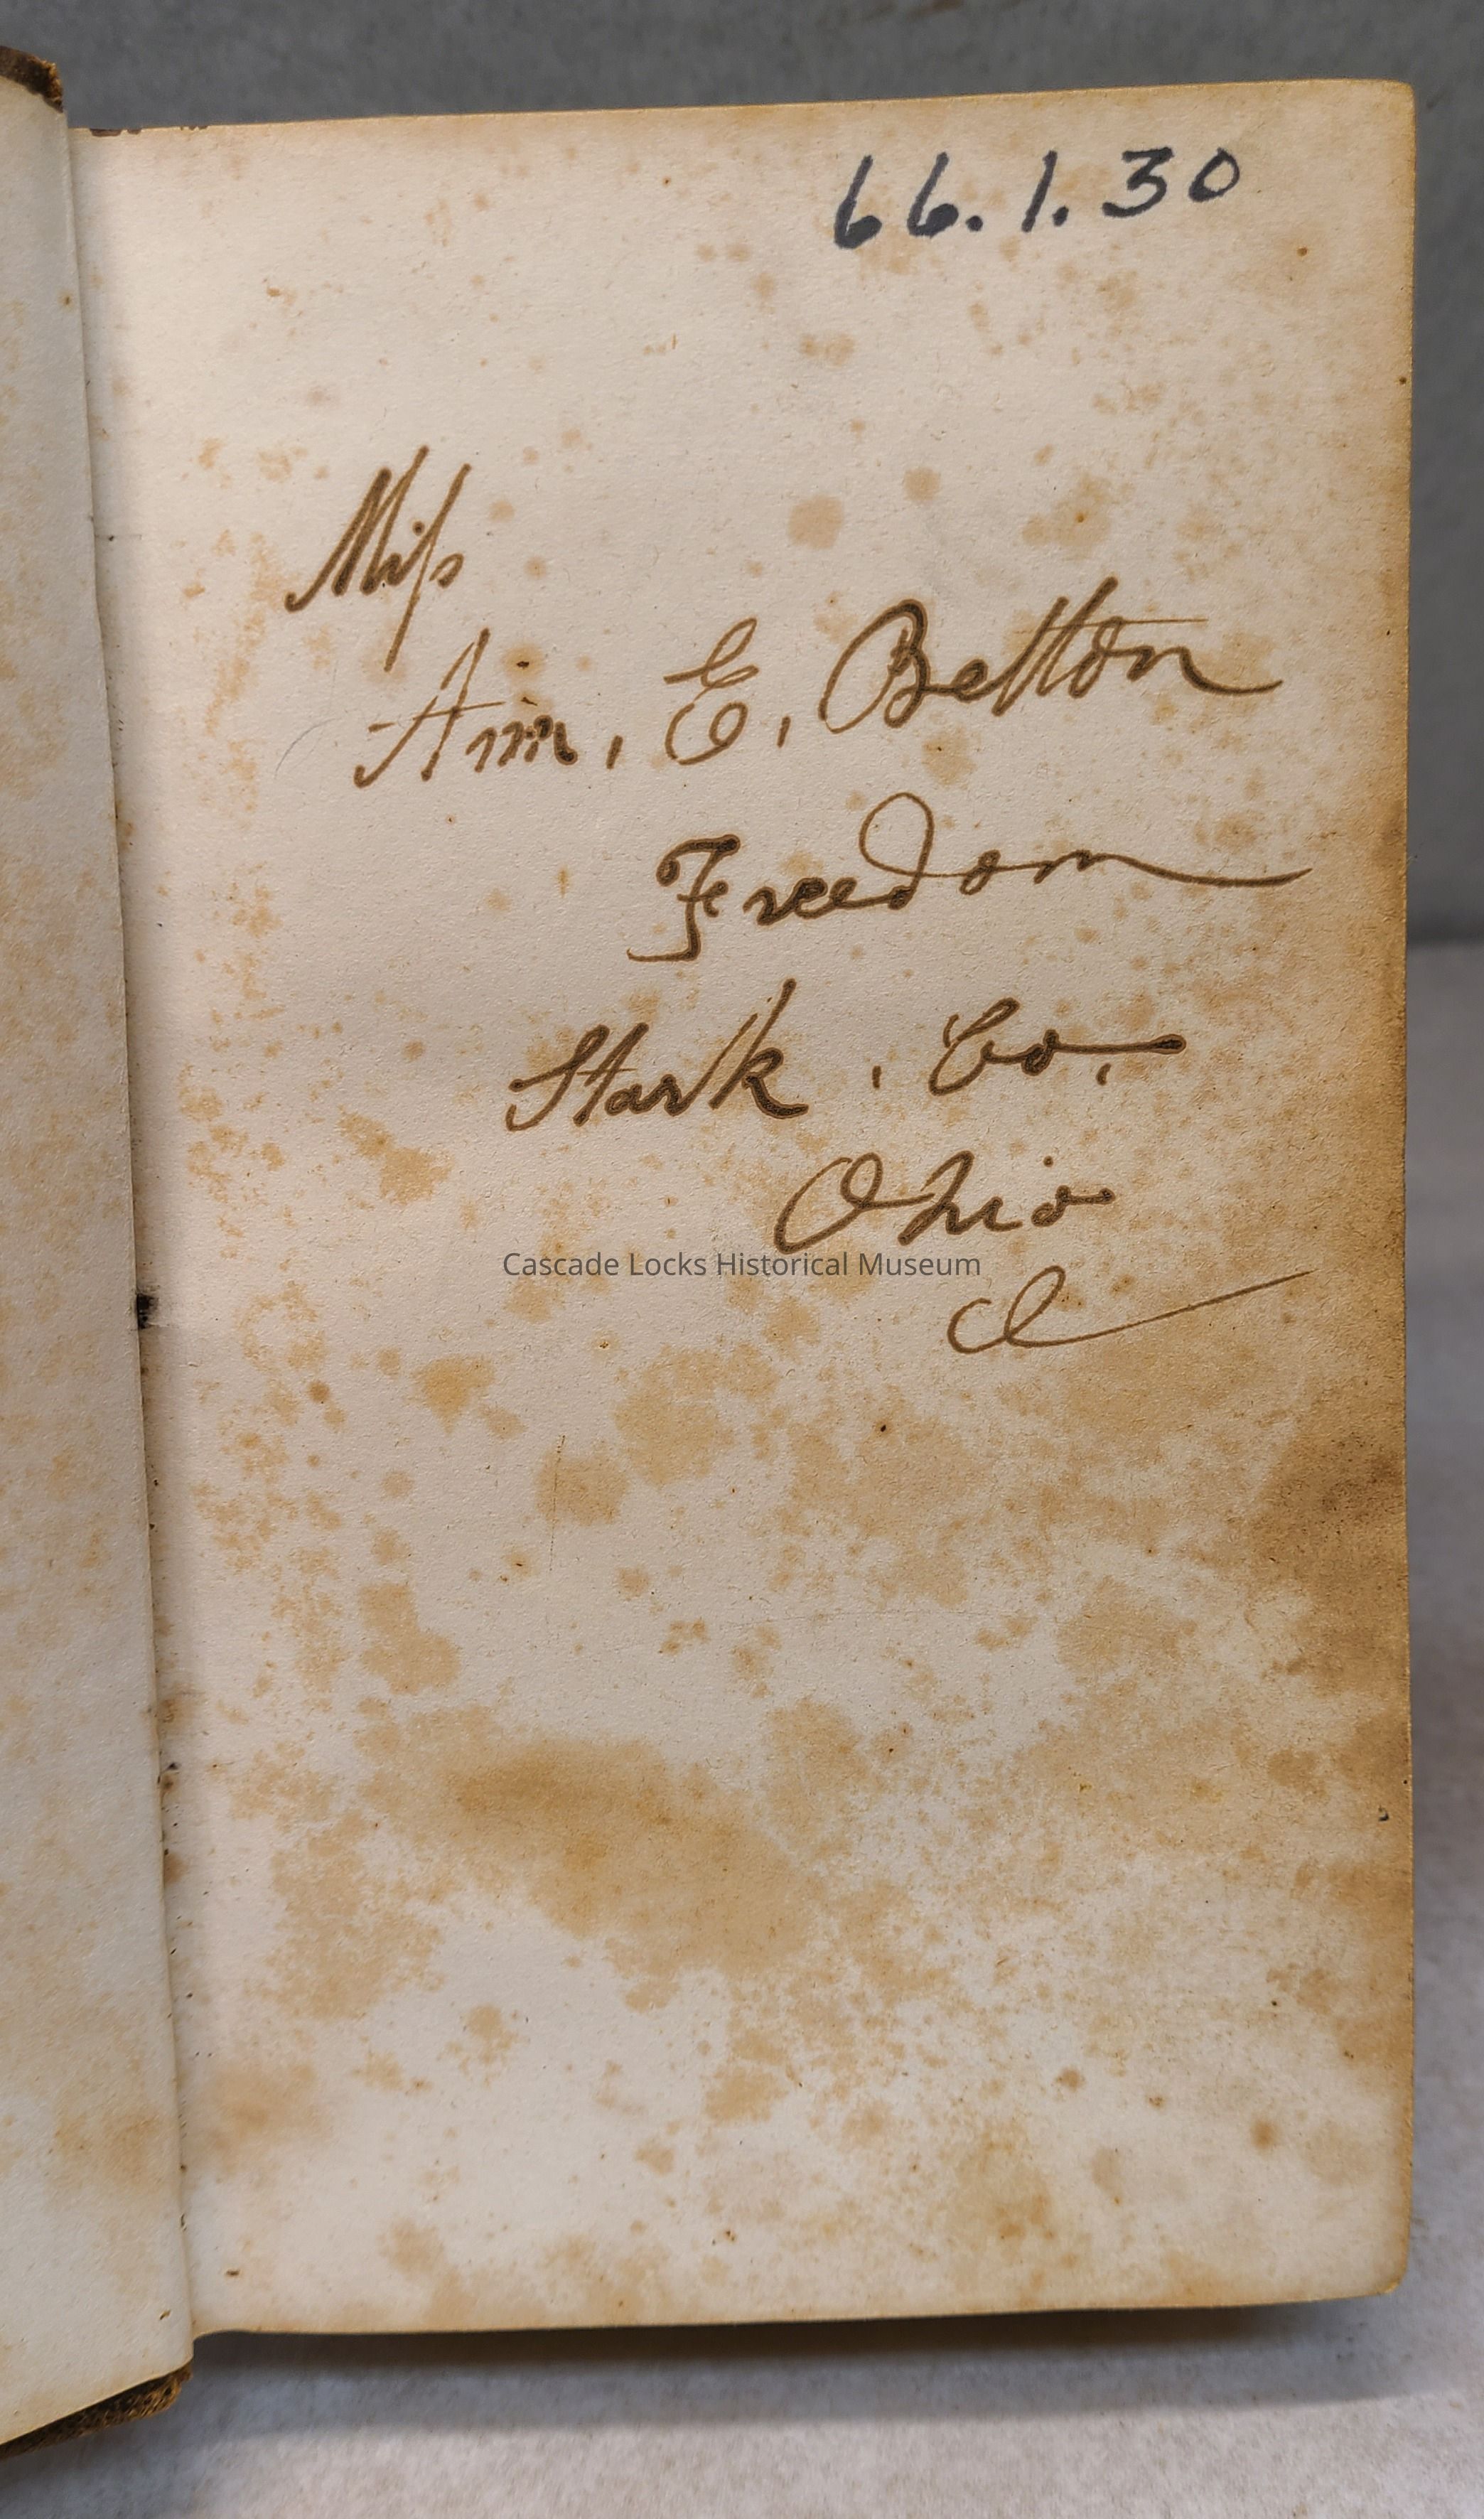 66.1.30
Miſs
Ann, E, Betton
Freedom
Stark, Co,
Ohio
Cascade Locks Historical Museum